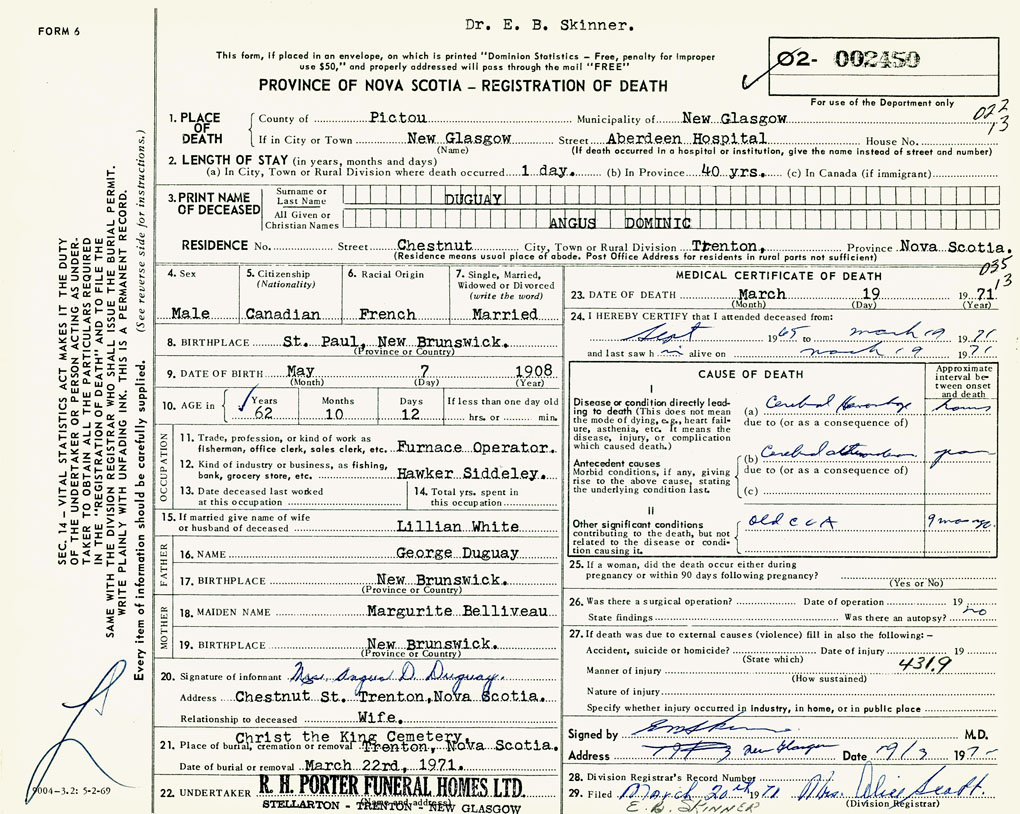 Dr. E. B. Skinner.
FORM 6
This form, if placed in an envelope, on which is printed "Dominion Statistics – Free, penalty for Improper
use $50," and properly addressed will pass through the mail "FREE"
02- 002450
For use of the Department only
PROVINCE OF NOVA SCOTIA – REGISTRATION OF DEATH
022
13
1. PLACE OF DEATH
County of Pictou Municipality of New Glasgow
If in City or Town New Glasgow Street Aberdeen Hospital House No.
(Name) (If death occurred in a hospital or institution, give the name instead of street and number)
2. LENGTH OF STAY (in years, months and days)
(a) In City, Town or Rural Division where death occurred 1 day. (b) In Province 40 yrs. (c) In Canada (if immigrant)
3. PRINT NAME OF DECEASED
Surname or Last Name DUGUAY
All Given or Christian Names ANGUS DOMINIC
RESIDENCE No. Street Chestnut City, Town or Rural Division Trenton, Province Nova Scotia.
(Residence means usual place of abode. Post Office Address for residents in rural parts not sufficient)
035
13
4. Sex Male
5. Citizenship (Nationality) Canadian
6. Racial Origin French
7. Single, Married, Widowed or Divorced (write the word) Married
8. BIRTHPLACE St. Paul, New Brunswick.
(Province or Country)
9. DATE OF BIRTH May 7 1908
(Month) (Day) (Year)
10. AGE in Years Months Days If less than one day old
62 10 12 hrs. or min.
OCCUPATION
11. Trade, profession, or kind of work as fisherman, office clerk, sales clerk, etc. Furnace Operator.
12. Kind of industry or business, as fishing, bank, grocery store, etc. Hawker Siddeley.
13. Date deceased last worked at this occupation
14. Total yrs. spent in this occupation
15. If married give name of wife or husband of deceased Lillian White
FATHER
16. NAME George Duguay
17. BIRTHPLACE New Brunswick.
(Province or Country)
MOTHER
18. MAIDEN NAME Margurite Belliveau
19. BIRTHPLACE New Brunswick.
(Province or Country)
20. Signature of informant Mrs. Angus D. Duguay.
Address Chestnut St. Trenton, Nova Scotia.
Relationship to deceased Wife.
Christ the King Cemetery,
21. Place of burial, cremation or removal Trenton, Nova Scotia.
Date of burial or removal March 22rd, 1971.
22. UNDERTAKER R. H. PORTER FUNERAL HOMES LTD.
(Name and address)
STELLARTON - TRENTON - NEW GLASGOW
MEDICAL CERTIFICATE OF DEATH
23. DATE OF DEATH March 19 1971
(Month) (Day) (Year)
24. I HEREBY CERTIFY that I attended deceased from:
Sept 1965 to march 19 1971
and last saw h im alive on march 19 1971
CAUSE OF DEATH
Approximate interval between onset and death
I
Disease or condition directly leading to death (This does not mean the mode of dying, e.g., heart failure, asthenia, etc. It means the disease, injury, or complication which caused death.)
(a) Cerebral Hemorrhage hours
due to (or as a consequence of)
Antecedent causes
Morbid conditions, if any, giving rise to the above cause, stating the underlying condition last.
(b) Cerebral
due to (or as a consequence of)
(c)
II
Other significant conditions contributing to the death, but not related to the disease or condition causing it.
Old CVA 9 mos ago
25. If a woman, did the death occur either during pregnancy or within 90 days following pregnancy?
(Yes or No)
26. Was there a surgical operation? Date of operation 19
State findings Was there an autopsy? no
27. If death was due to external causes (violence) fill in also the following: –
Accident, suicide or homicide? Date of injury 19
(State which)
Manner of injury 431.9
(How sustained)
Nature of injury
Specify whether injury occurred in industry, in home, or in public place
Signed by EB Skinner M.D.
Address New Glasgow Date 19/3 197
28. Division Registrar's Record Number
29. Filed March 20th 1971 Mrs. Alice Scott.
(Division Registrar)
E. B. SKINNER
SEC. 14 – VITAL STATISTICS ACT MAKES IT THE DUTY
OF THE UNDERTAKER OR PERSON ACTING AS UNDER-
TAKER TO OBTAIN ALL THE PARTICULARS REQUIRED
IN THE "REGISTRATION OF DEATH" AND TO FILE THE
SAME WITH THE DIVISION REGISTRAR WHO SHALL ISSUE THE BURIAL PERMIT.
WRITE PLAINLY WITH UNFADING INK. THIS IS A PERMANENT RECORD.
Every item of information should be carefully supplied. (See reverse side for instructions.)
9004-3.2: 5-2-69